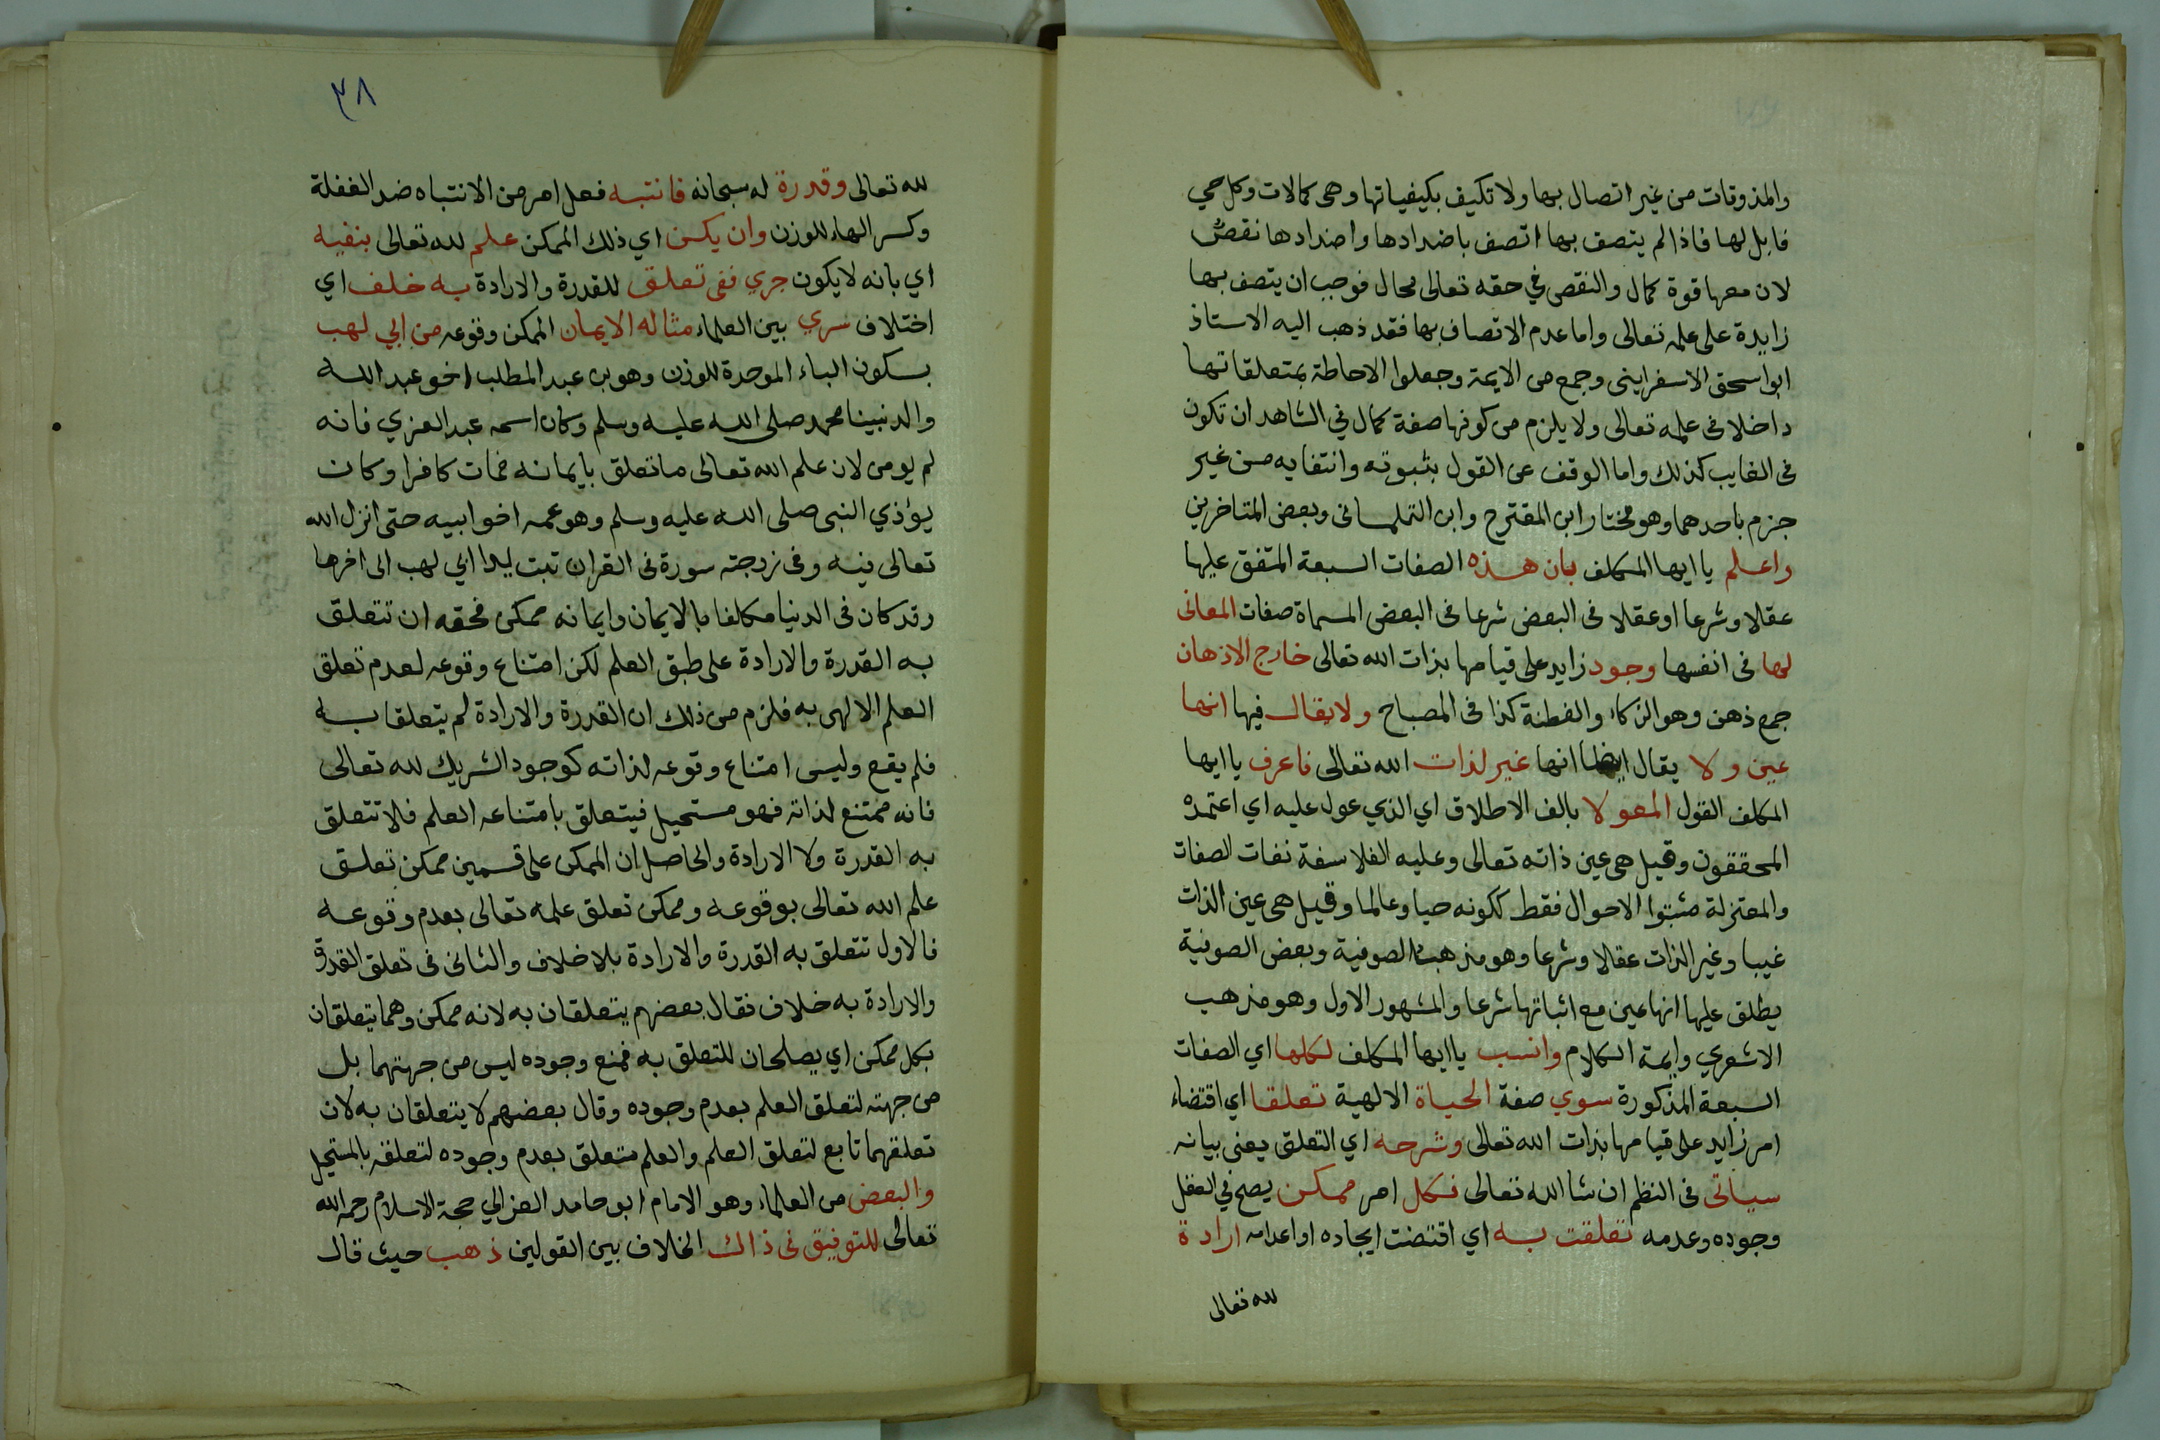 والمذوقات من غير اتصال بها ولا تكيف بكيفياتها وهى كمالات وكل حي
قابل لها فاذا لم يتصف بها اتصف باضدادها واضدادها نقص
لان معها قوة كمال والنقص في حقه تعالى محال فوجب ان يتصف بها
زايدة على علمه تعالى واما عدم الاتصاف بها فقد ذهب اليه الاستاذ
ابو اسحق الاسفراينى وجمع من الايمة وجعلوا الاحاطة بمتعلقاتها
داخلا فى علمه تعالى ولا يلزم من كونها صفة كمال في الشاهد ان تكون
فى الغايب كذلك واما الوقف عن القول بثبوته وانتفايه من غير
جزم باحدهما وهو مختار ابن المقترح وابن التلمسانى وبعض المتاخرين
واعلم يا ايها المكلف بان هذه الصفات السبعة المتفق عليها
عقلا وشرعا او عقلا فى البعض شرعا فى البعض المسماة صفات المعانى
لها فى انفسها وجود زايد على قيامها بذات الله تعالى خارج الاذهان
جمع ذهن وهو الذكاء والفطنة كذا فى المصباح ولا يقال فيها انها
عين ولا يقال ايضا انها غير لذات الله تعالى فاعرف يا ايها
المكلف القول المعولا بالف الاطلاق اي الذي عول عليه اي اعتمده
المحققون وقيل هى عين ذاته تعالى وعليه الفلاسفة نفات الصفات
والمعتزلة مثبتوا الاحوال فقط ككونه حيا وعالما وقيل هى عين الذات
غيبا وغير الذات عقلا وشرعا وهو مذهب الصوفية وبعض الصوفية
يطلق عليها انها عين مع اثباتها شرعا والمشهور الاول وهو مذهب
الاشعري وايمة الكلام وانسب يا ايها المكلف لكلها اي الصفات
السبعة المذكورة سوي صفة الحياة الالهية تعلقا اي اقتضاء
امر زايد على قيامها بذات الله تعالى وشرحه اي التعلق يعنى بيانه
سياتى فى النظم ان شا الله تعالى فكل امر ممكن يصح في العقل
وجوده وعدمه تعلقت به اي اقتضت ايجاده او اعدامه ارادة
لله تعالى
٣٨
لله تعالى وقدرة له سبحانه فانتبه فعل امر من الانتباه ضد الغفلة
وكسر الهاء للوزن وان يكن اي ذلك الممكن علم لله تعالى بنفيه
اي بانه لا يكون جري ففى تعلق للقدرة والارادة به خلف اي
اختلاف سري بين العلماء مثاله الايمان الممكن وقوعه من ابي لهب
بسكون الباء الموحدة للوزن وهو بن عبد المطلب اخو عبد الله
والد نبينا محمد صلى الله عليه وسلم وكان اسمه عبد العزي فانه
لم يومن لان علم الله تعالى ما تعلق بايمانه فمات كافرا وكان
يؤذي النبى صلى الله عليه وسلم وهو عمه اخو ابيه حتى انزل الله
تعالى فيه وفى زوجته سورة فى القران تبت يدا ابي لهب الى اخرها
وقد كان فى الدنيا مكلفا بالايمان وايمانه ممكن فحقه ان تتعلق
به القدرة والارادة على طبق العلم لكن امتناع وقوعه لعدم تعلق
العلم الالهى به فلزم من ذلك ان القدرة والارادة لم يتعلقا به
فلم يقع وليس امتناع وقوعه لذاته كوجود الشريك لله تعالى
فانه ممتنع لذاته فهو مستحيل فيتعلق بامتناعه العلم فلا تتعلق
به القدرة ولا الارادة والحاصل ان الممكن على قسمين ممكن تعلق
علم الله تعالى بوقوعه وممكن تعلق علمه تعالى بعدم وقوعه
فالاول تتعلق به القدرة والارادة بلا خلاف والثانى فى تعلق القدرة
والارادة به خلاف فقال بعضهم يتعلقان به لانه ممكن وهما يتعلقان
بكل ممكن اي يصلحان للتعلق به فمنع وجوده ليس من جهتهما بل
من جهته لتعلق العلم بعدم وجوده وقال بعضهم لا يتعلقان به لان
تعلقهما تابع لتعلق العلم والعلم متعلق بعدم وجوده لتعلقه بالمستحيل
والبعض من العلماء وهو الامام ابو حامد الغزالي حجة الاسلام رحمه الله
تعالى للتوفيق فى ذاك الخلاف بين القولين ذهب حيث قال